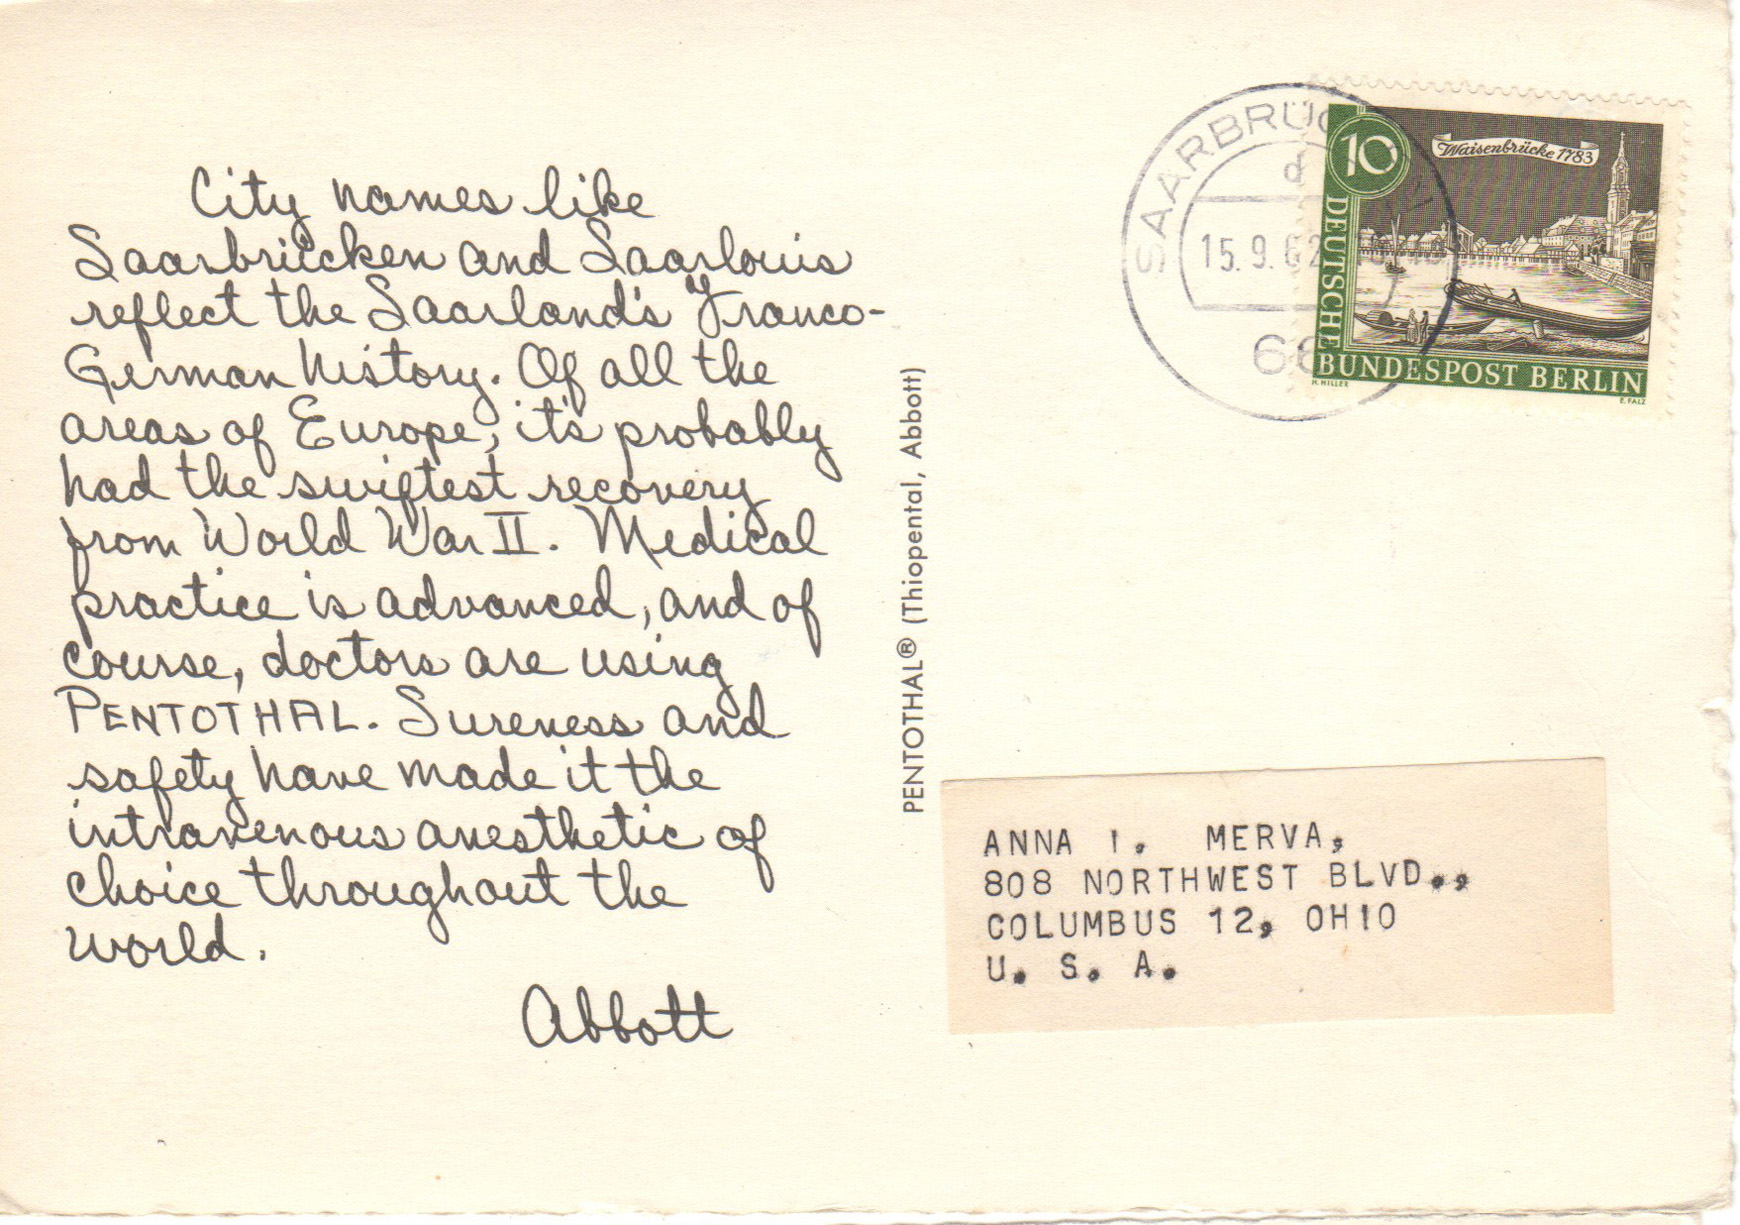 City names like
Saarbrücken and Saarlouis
reflect the Saarland's Franco-
German history. Of all the
areas of Europe, it's probably
had the swiftest recovery
from World War II. Medical
practice is advanced, and of
course, doctors are using
PENTOTHAL. Sureness and
safety have made it the
intravenous anesthetic of
choice throughout the
world.
Abbott
PENTOTHAL® (Thiopental, Abbott)
SAARBRÜCKEN
d
15.9.62
66
10
Waisenbrücke 1783
DEUTSCHE
BUNDESPOST BERLIN
H. HILLER
E. FALZ
ANNA I. MERVA,
808 NORTHWEST BLVD.,
COLUMBUS 12, OHIO
U. S. A.